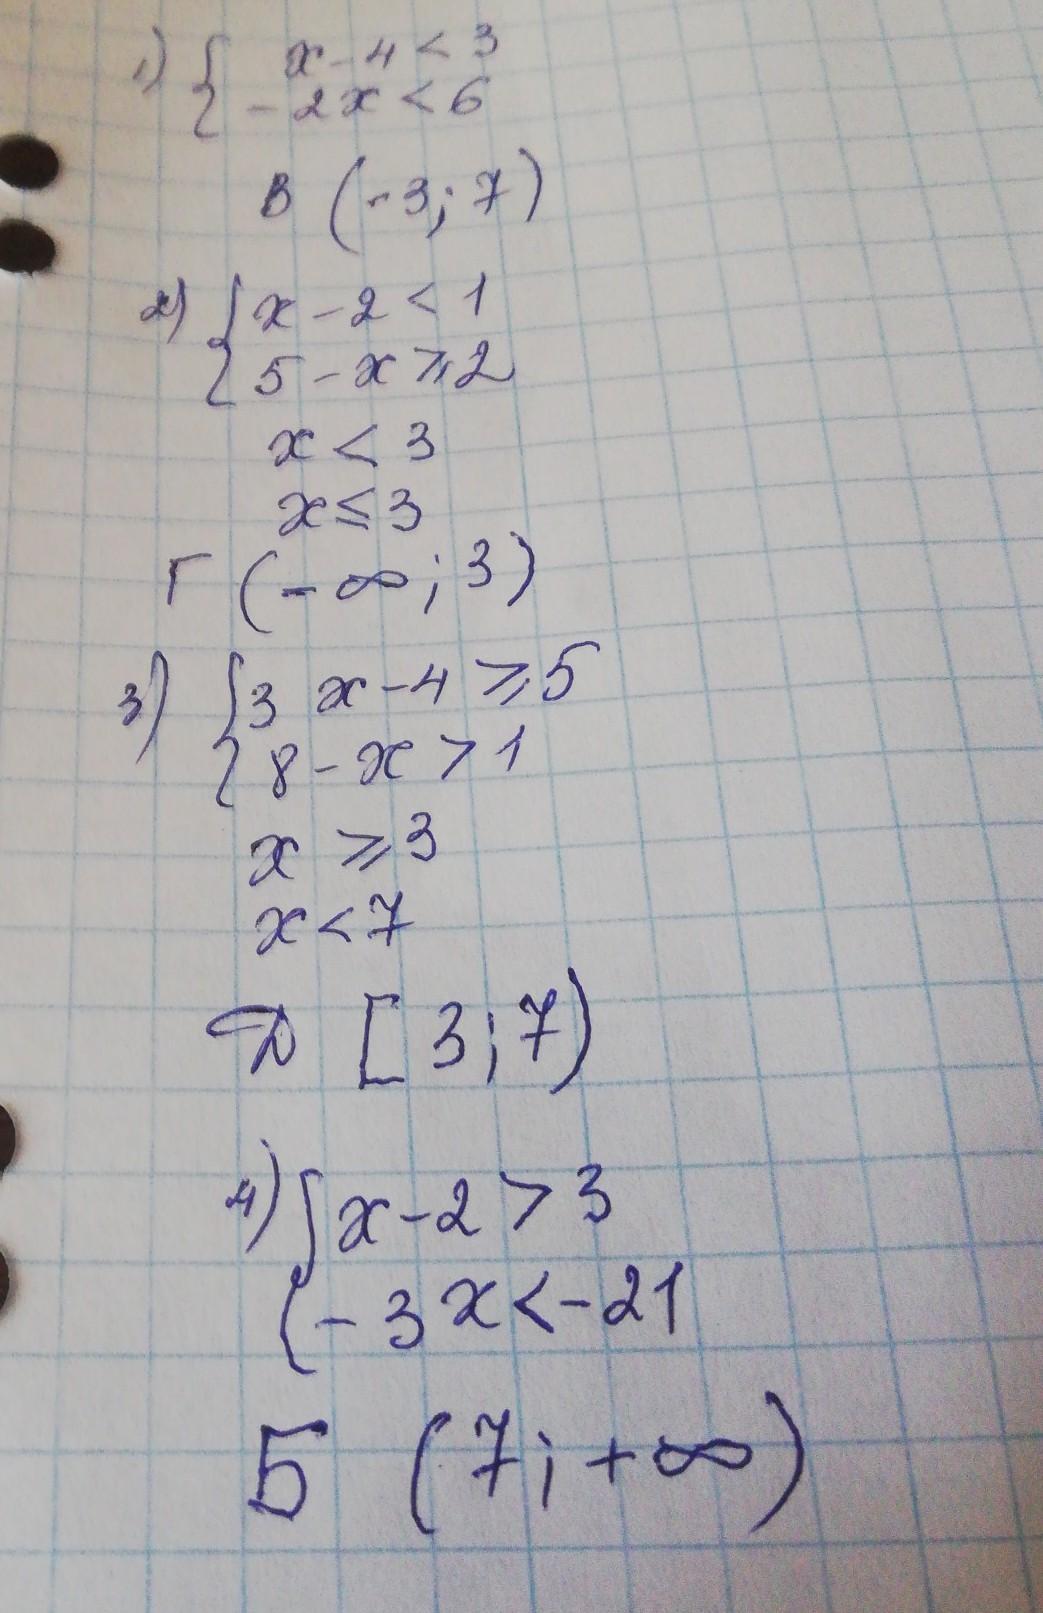 1) { x - 4 < 3
- 2x < 6
В (-3; 7)
2) { x - 2 < 1
5 - x ⩾ 2
x < 3
x ≤ 3
Г (- ∞; 3)
3) { 3 x - 4 ⩾ 5
8 - x > 1
x ⩾ 3
x < 7
Д [3; 7)
4) { x - 2 > 3
- 3x < - 21
Б (7; + ∞)